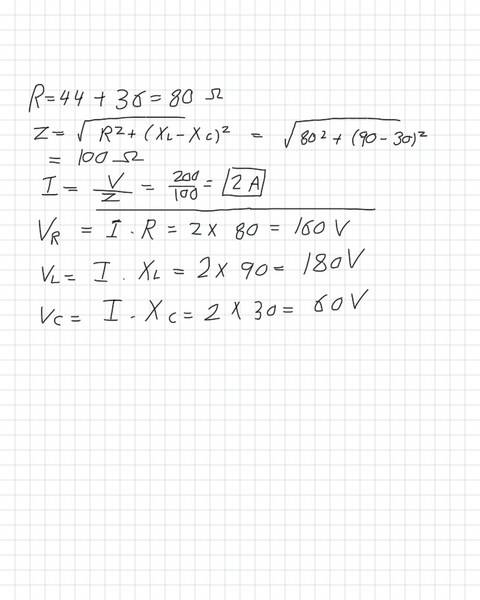 R = 44 + 36 = 80 Ω
Z = √(R² + (XL - Xc)²) = √(80² + (90 - 30)²)
= 100 Ω
I = V/Z = 200/100 = 2 A
VR = I · R = 2 × 80 = 160 V
VL = I · XL = 2 × 90 = 180V
Vc = I · Xc = 2 × 30 = 60V